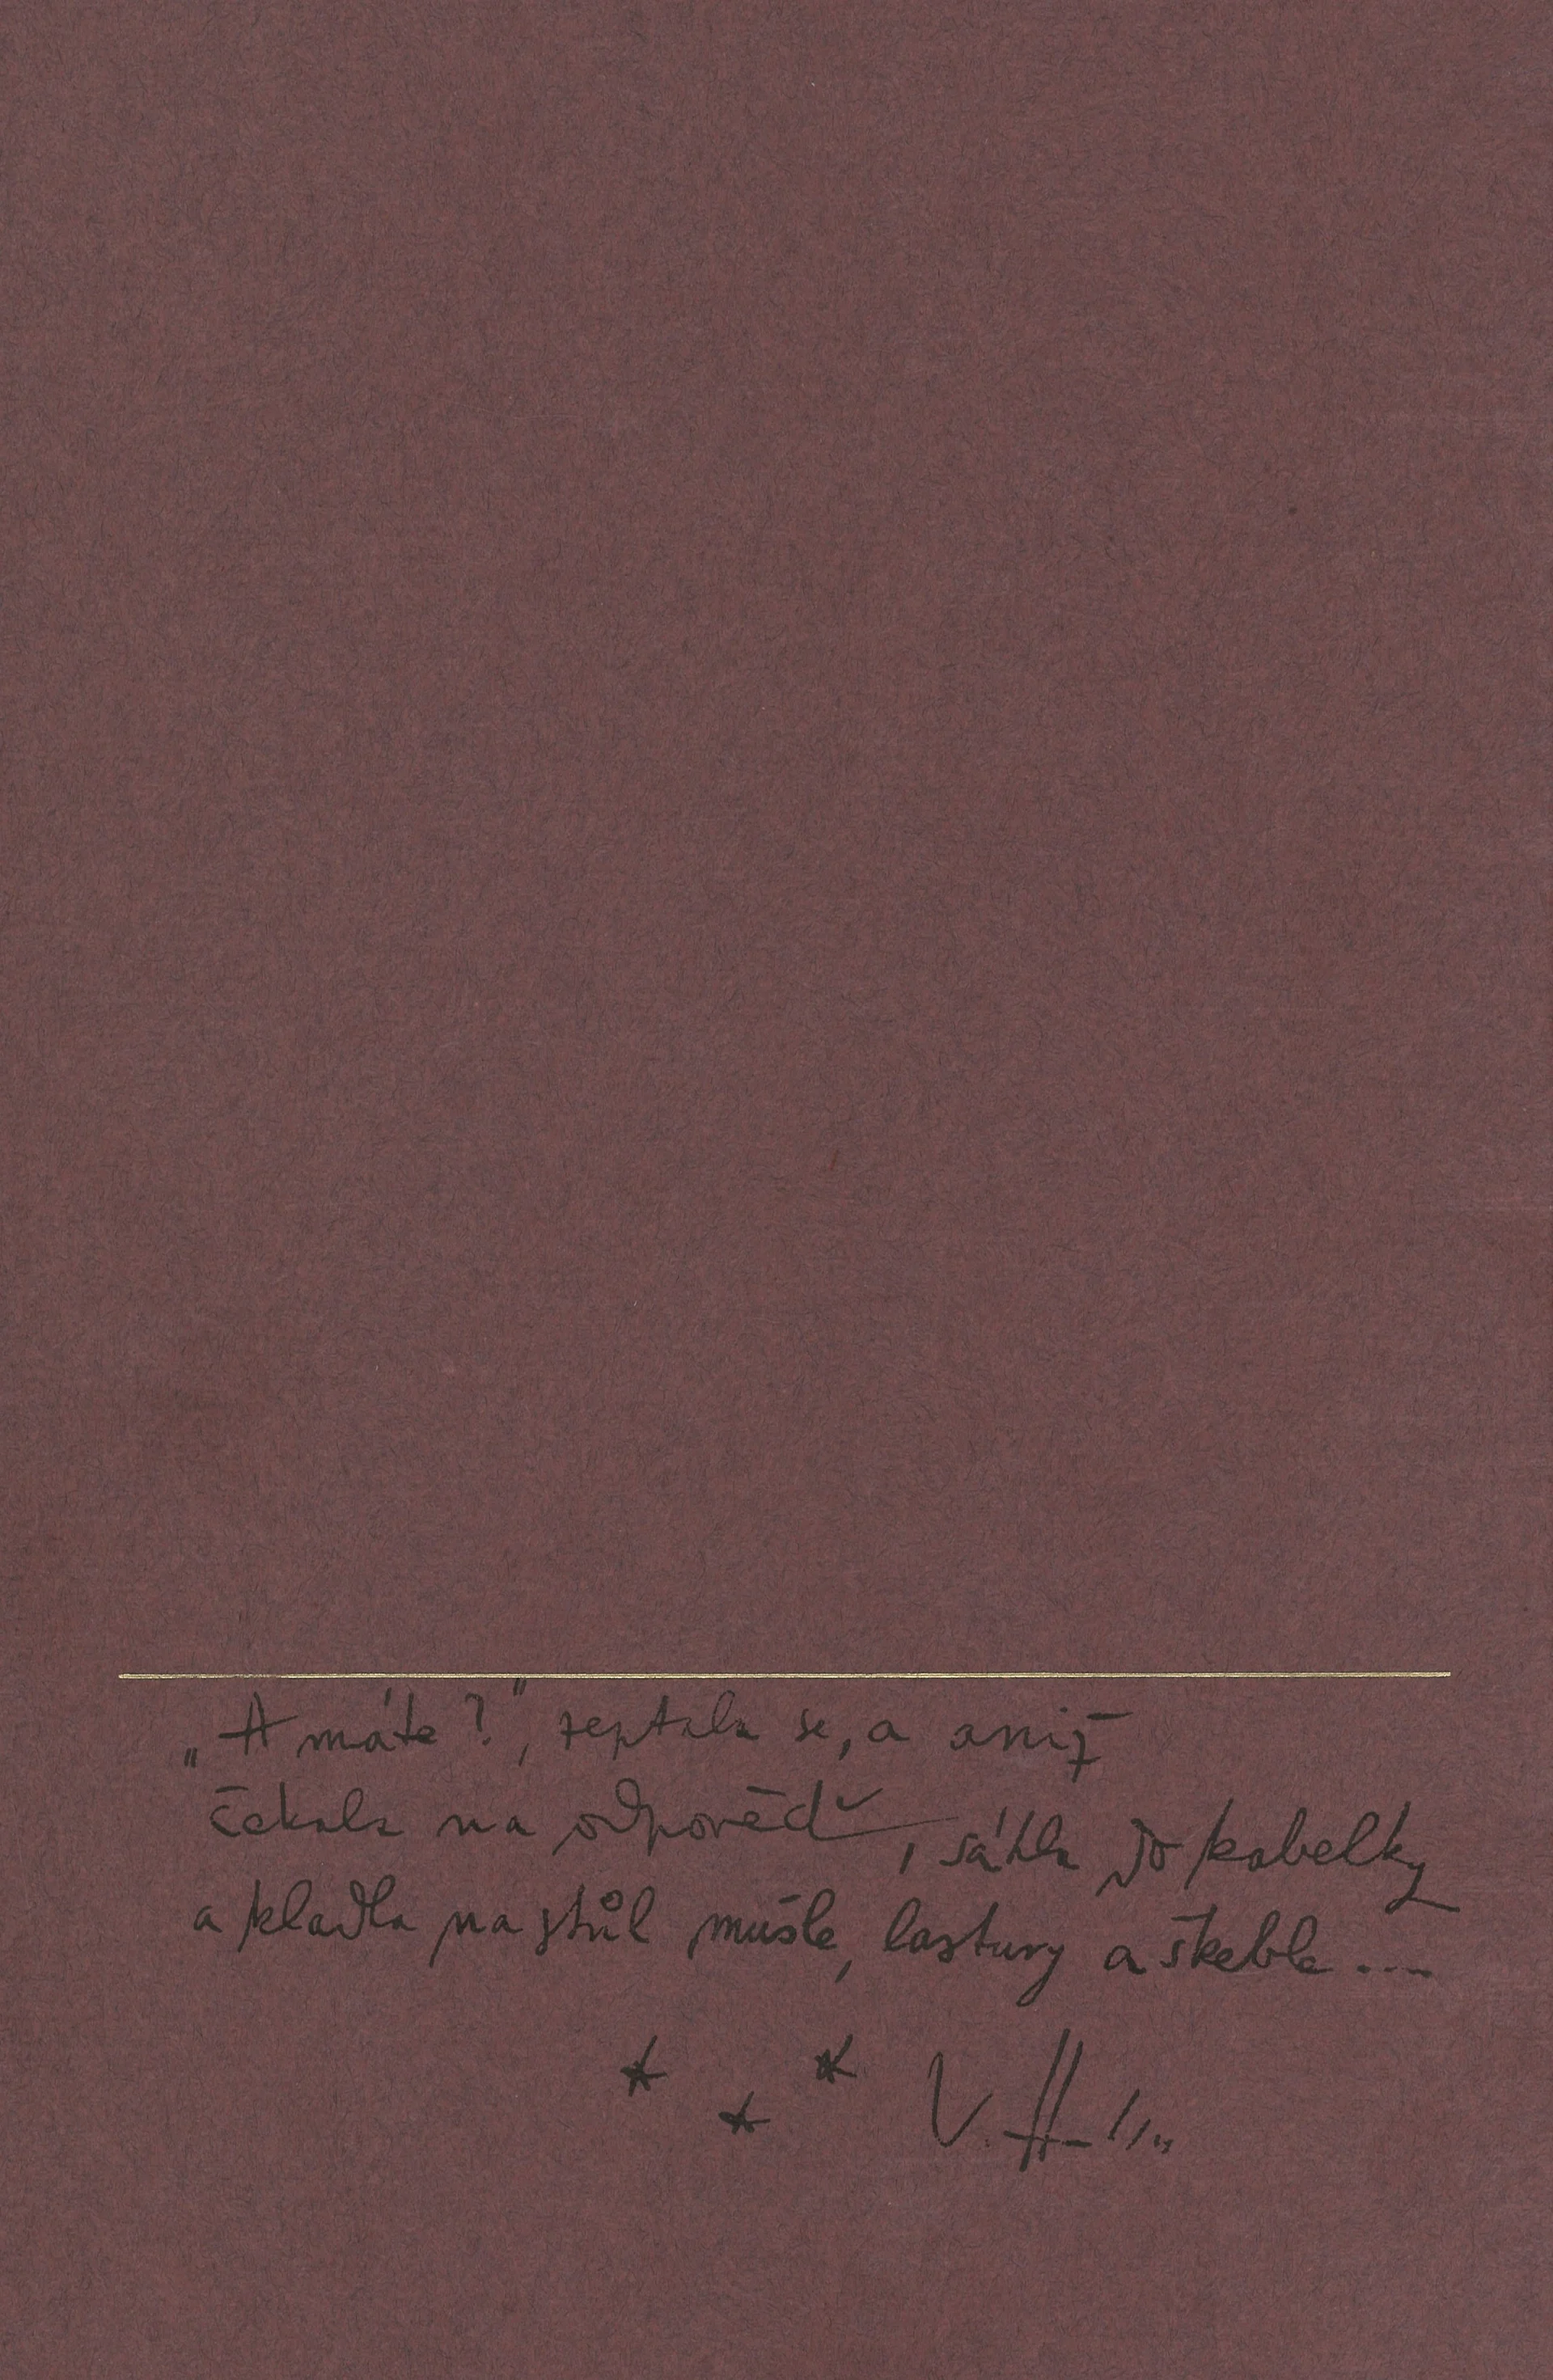 „A máte?", zeptala se, a aniž
čekala na odpověď, sáhla do kabelky
a kladla na stůl mušle, lastury a škeble....
* * * V. H